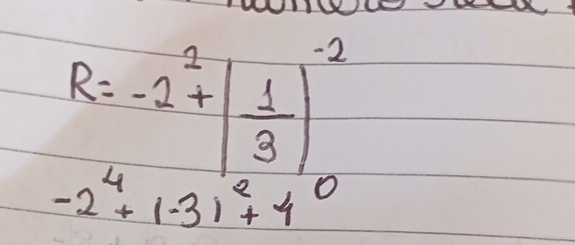 R= -2² + |1/3|⁻²
-2⁴ + |-3|² + 4⁰